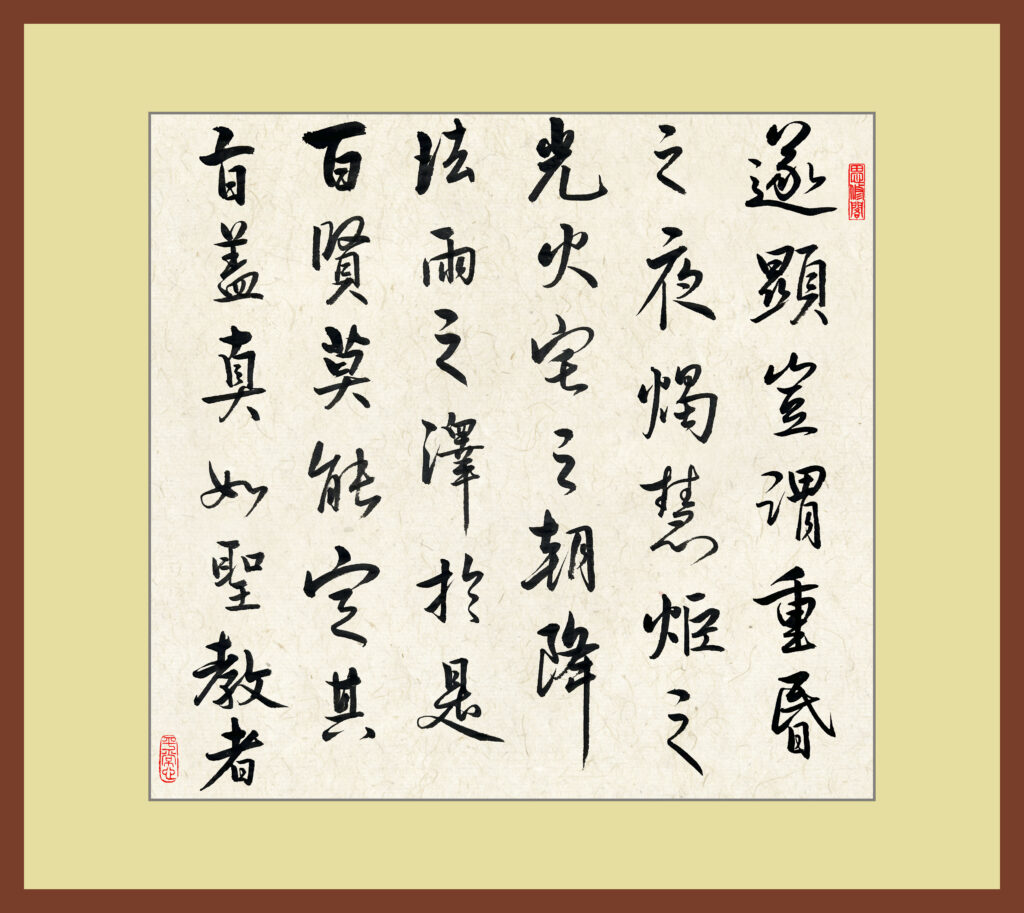 思修閣
遂顯豈謂重昬
之夜燭慧炬之
光火宅之朝降
法雨之澤於是
百賢莫能定其
旨盖真如聖教者
平常心